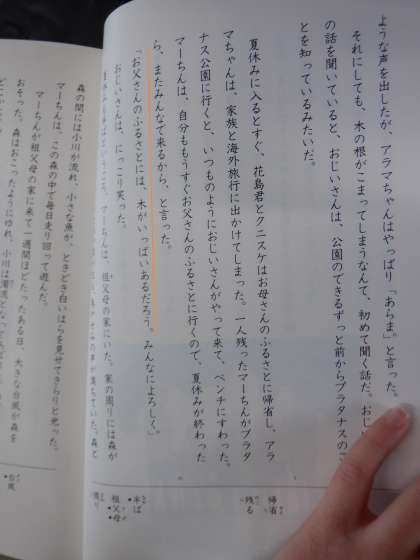 ような声を出したが、アラマちゃんはやっぱり「あらま。」と言った。
それにしても、木の根がこまってしまうなんて、初めて聞く話だ。おじい
の話を聞いていると、おじいさんは、公園のできるずっと前からプラタナスのこ
とを知っているみたいだ。
夏休みに入るとすぐ、花島君とクニスケはお母さんのふるさとに帰省し、アラ
マちゃんは、家族と海外旅行に出かけてしまった。一人残ったマーちんがプラタ
ナス公園に行くと、いつものようにおじいさんがやって来て、ベンチにすわった。
マーちんは、自分ももうすぐお父さんのふるさとに行くので、夏休みが終わった
ら、またみんなで来るから、と言った。
「お父さんのふるさとには、木がいっぱいあるだろう。みんなによろしく。」
おじいさんは、にっこり笑った。
マーちんは、祖父母の家にいた。家の周りには森が
森と
森の間には小川が流れ、小さな魚が、ときどき白いはらを見せてきらりと光った。
マーちんは、この森の中で毎日走り回って遊んだ。
マーちんが祖父母の家に来て一週間ほどたったある日、大きな台風が森を
おそった。森はおこったようにゆれ、小川は濁流となって
帰省
残る
半ば
祖父母
周り
台風